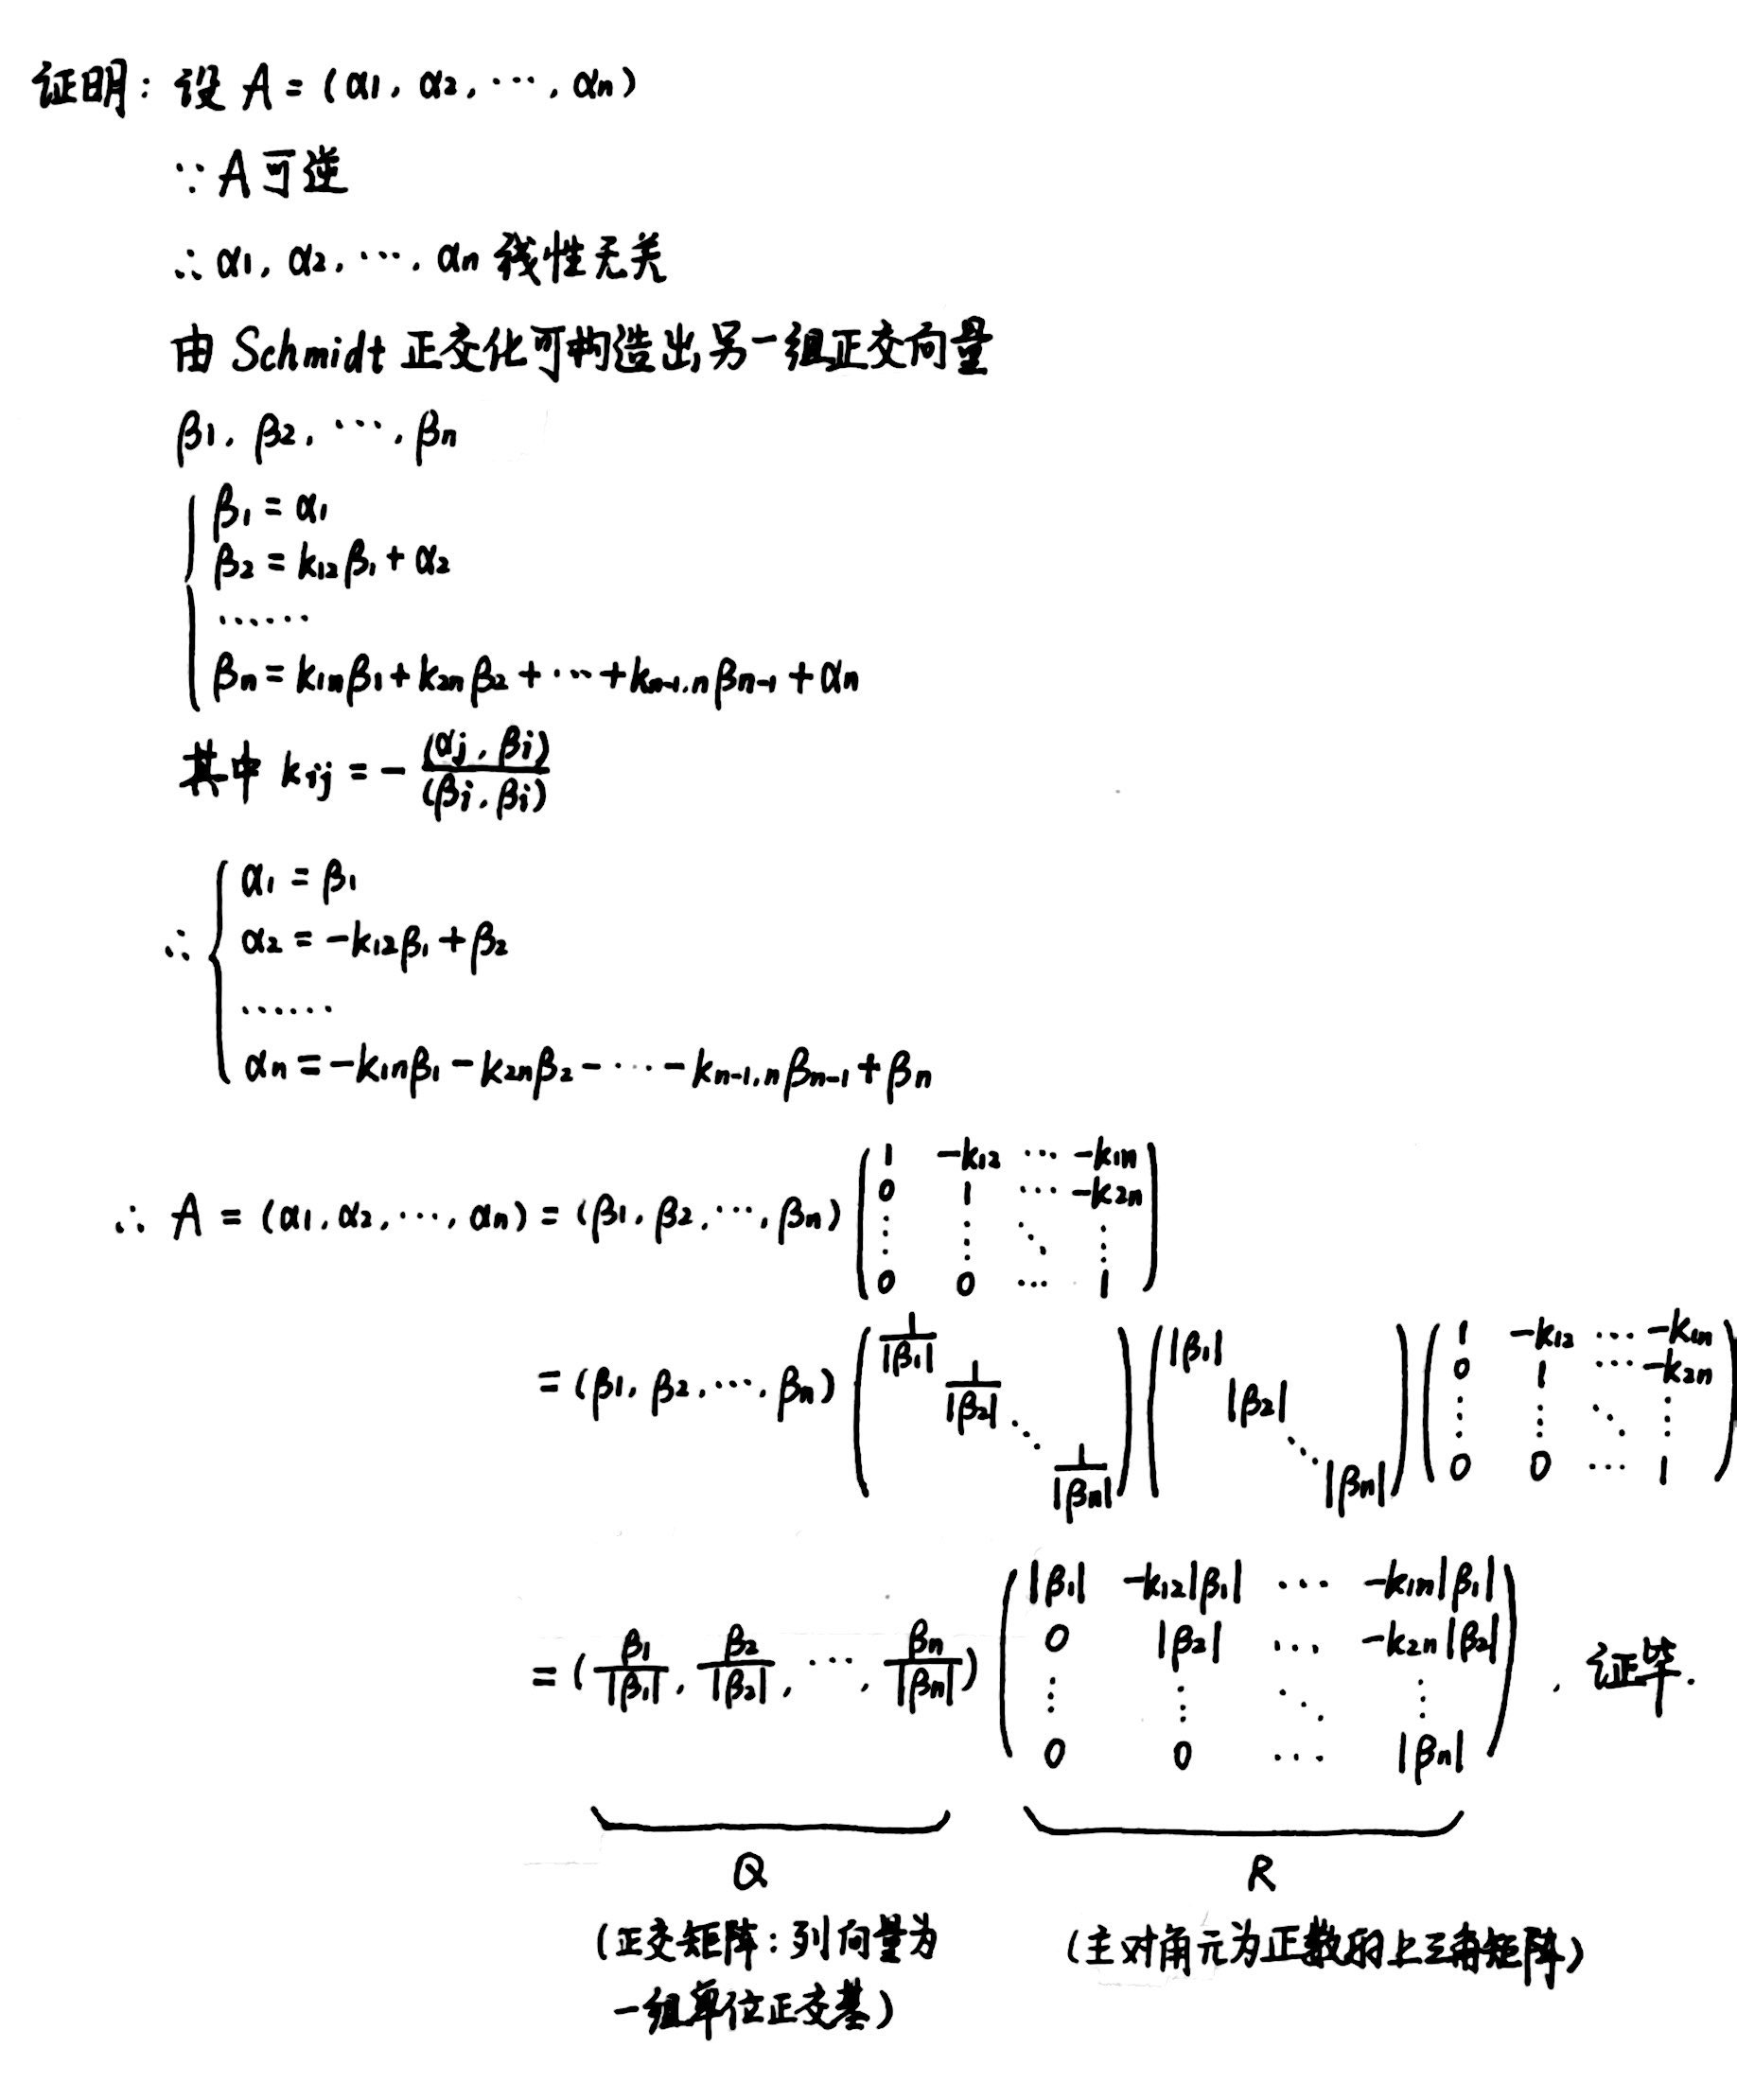 证明：设 A = (α1, α2, ⋯, αn)
∵ A 可逆
∴ α1, α2, ⋯, αn 线性无关
由 Schmidt 正交化可构造出另一组正交向量
β1, β2, ⋯, βn
β1 = α1
β2 = k12β1 + α2
⋯⋯
βn = k1nβ1 + k2nβ2 + ⋯ + kn-1,nβn-1 + αn
其中 kij = - (αj, βi) / (βi, βi)
∴ α1 = β1
α2 = -k12β1 + β2
⋯⋯
αn = -k1nβ1 - k2nβ2 - ⋯ - kn-1,nβn-1 + βn
∴ A = (α1, α2, ⋯, αn) = (β1, β2, ⋯, βn) ( 1 -k12 ⋯ -k1n ; 0 1 ⋯ -k2n ; ⋮ ⋮ ⋱ ⋮ ; 0 0 ⋯ 1 )
= (β1, β2, ⋯, βn) ( 1/|β1| 1/|β2| ⋱ 1/|βn| ) ( |β1| |β2| ⋱ |βn| ) ( 1 -k12 ⋯ -k1n ; 0 1 ⋯ -k2n ; ⋮ ⋮ ⋱ ⋮ ; 0 0 ⋯ 1 )
= ( β1/|β1|, β2/|β2|, ⋯, βn/|βn| ) ( |β1| -k12|β1| ⋯ -k1n|β1| ; 0 |β2| ⋯ -k2n|β2| ; ⋮ ⋮ ⋱ ⋮ ; 0 0 ⋯ |βn| ) , 证毕.
Q R
(正交矩阵：列向量为 (主对角元为正数的上三角矩阵)
一组单位正交基)